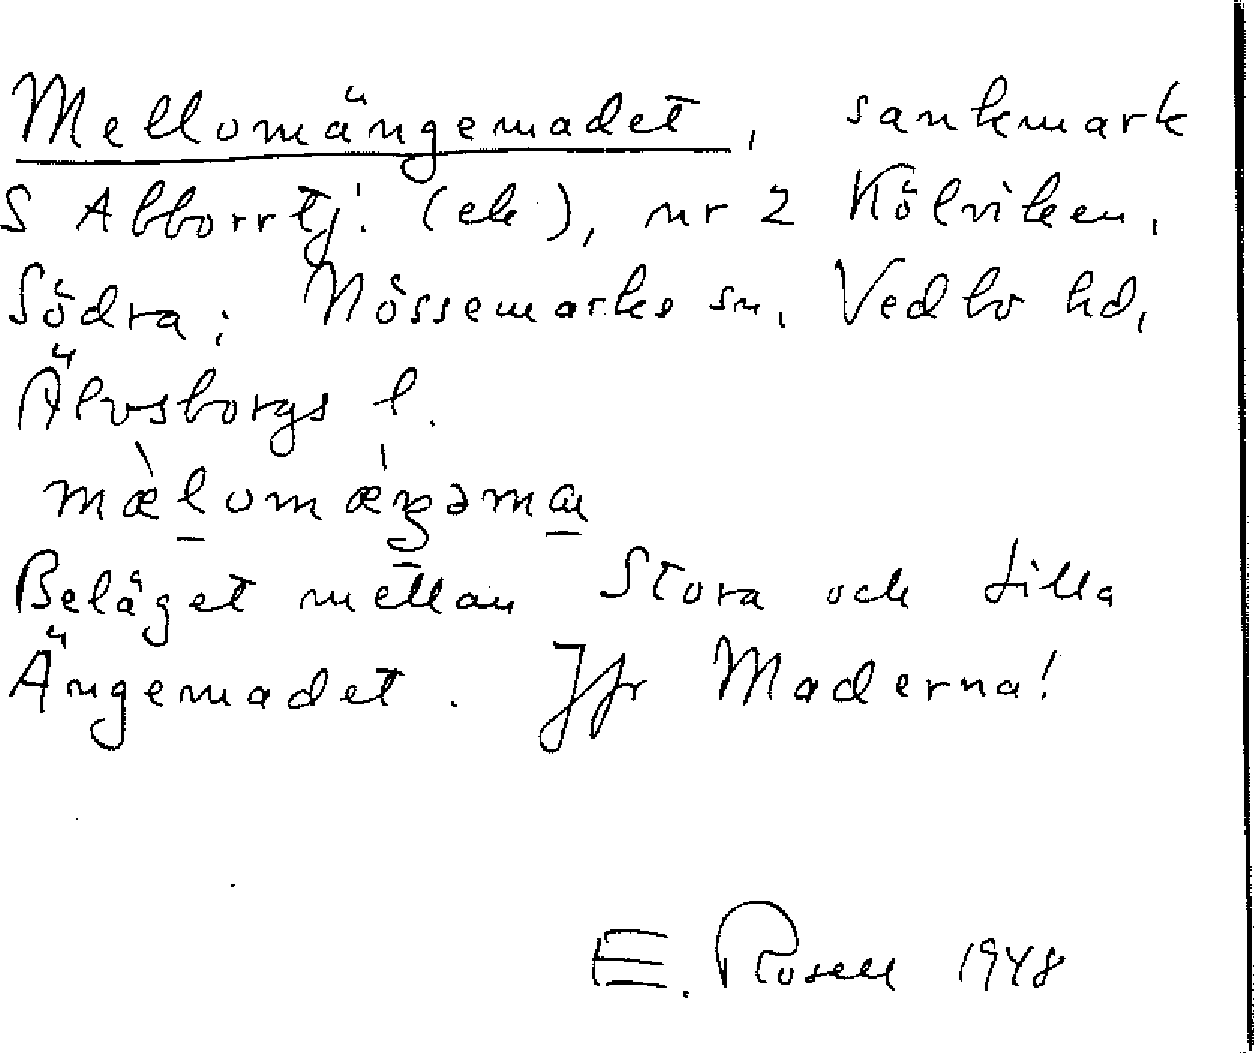 Mellomängemadet, sankmark
S Abborrtj. (ek), nr 2 Kölviken,
Södra; Nössemarks sn, Vedbo hd,
Älvsborgs l.
mæ̀lomæ̀ŋəma
Beläget mellan Stora och Lilla
Ängemadet. Jfr Maderna!
E. Rosell 1948